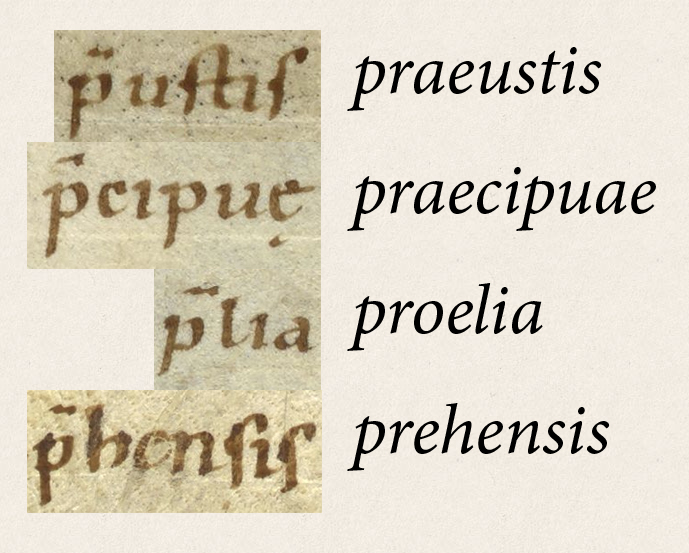 p̄ustis praeustis
p̄cipuę praecipuae
p̄lia proelia
p̄hensis prehensis